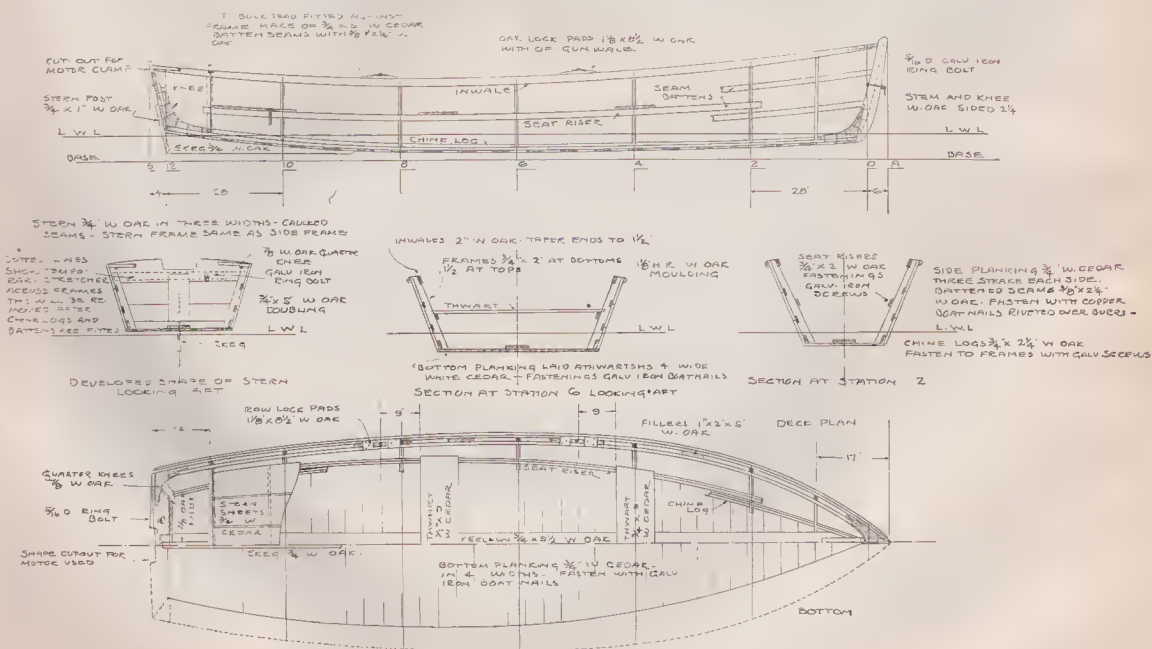 FRAME MADE OF 3/4 X 5 W CEDAR
BATTEN SEAMS WITH 3/8 X 2 1/4 W
OAK
OAK LOCK PADS 1 1/8 X 8 1/2 W OAK
WITH OF GUNWALE
CUT OUT FOR
MOTOR CLAMP
KNEE
STERN POST
3/4 X 1" W OAK
INWALE
SEAM
BATTENS
5/16 D GALV IRON
RING BOLT
STEM AND KNEE
W. OAK SIDED 2 1/4
SEAT RISER
CHINE LOG
L W L
L. W. L
SKEG W. OAK
BASE
BASE
S 12 10 8 6 4 2 0 A
4 28 28" 6
STERN 3/4" W OAK IN THREE WIDTHS - CAULKED
SEAMS - STERN FRAME SAME AS SIDE FRAME
SHOW TEMPO
RARY STRETCHER
ACROSS FRAMES
THIS WL BE RE
MOVED AFTER
CHINE LOGS AND
BATTENS ARE FITTED
7/8 W. OAK QUARTER
KNEE
GALV IRON
RING BOLT
3/4 X 5" W OAK
DOUBLING
L W L
SKEG
DEVELOPED SHAPE OF STERN
LOOKING AFT
INWALES 2" W OAK. TAPER ENDS TO 1 1/2"
FRAMES 3/4" X 2" AT BOTTOMS
1 1/2 AT TOPS
H R W OAK
MOULDING
THWART
L W L
BOTTOM PLANKING LAID ATHWARTSHS 4 WIDE
WHITE CEDAR - FASTENINGS GALV IRON BOATNAILS
SECTION AT STATION 6 LOOKING AFT
SEAT RISERS
3/4" X 2" W OAK
FASTENINGS
GALV. IRON
SCREWS
SIDE PLANKING 3/4" W. CEDAR
THREE STRAKE EACH SIDE.
BATTENED SEAMS 3/8" X 2 1/4"
W OAK. FASTEN WITH COPPER
BOAT NAILS RIVETED OVER BURRS -
L. W. L
CHINE LOGS 3/4" X 2 1/4" W OAK
FASTEN TO FRAMES WITH GALV SCREWS
SECTION AT STATION 2
ROW LOCK PADS
1 1/8" X 8 1/2" W OAK
9"
9"
FILLERS 1" X 2" X 5"
W. OAK
DECK PLAN
17"
QUARTER KNEES
7/8 W OAK
5/16 D RING
BOLT
SHAPE CUTOUT FOR
MOTOR USED
STERN
SHEETS
3/4 W
CEDAR
SEAT RISER
THWART
W CEDAR
THWART
W CEDAR
CHINE
LOG
KEELSON 3/4 X 5 1/2 W OAK
SKEG 3/4 W OAK.
BOTTOM PLANKING 3/4" W CEDAR -
IN 4 WIDTHS - FASTEN WITH GALV
IRON BOAT NAILS
BOTTOM